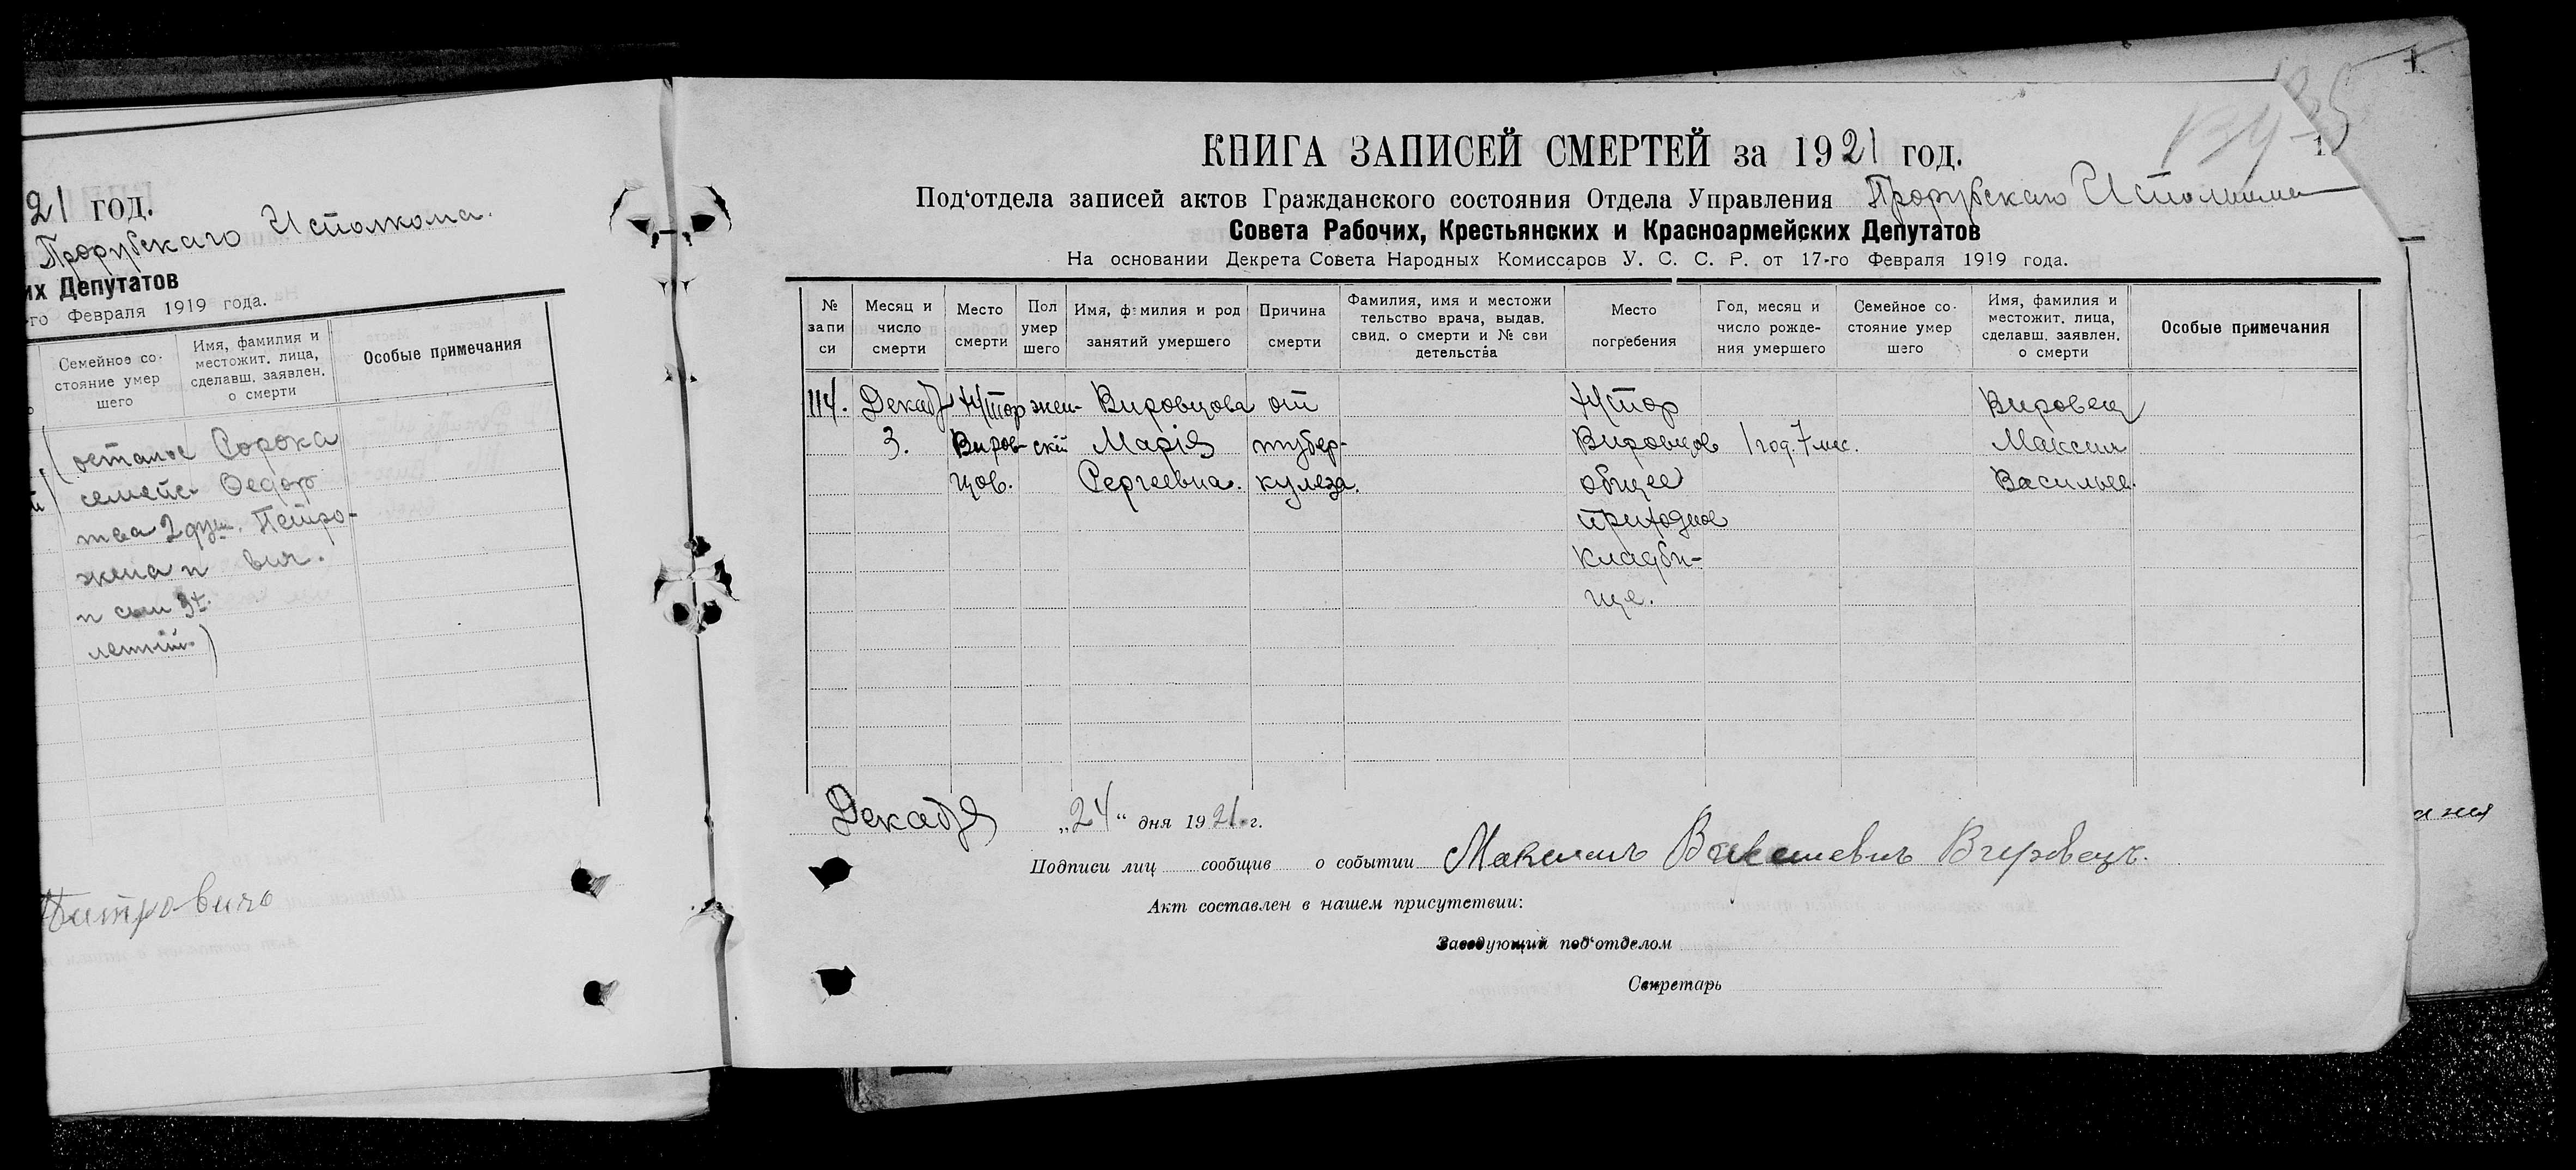 21 год.
Прорубскаго Исполкома.
их Депутатов
-го Февраля 1919 года.
Семейное со-
стояние умер
шего
Имя, фамилия и
местожит. лица,
сделавш. заявлен.
о смерти
Особые примечания
осталос Сорока
семейс- Федор
тва 2 душ. Петро-
жена и вич.
и сын
летній)
Петровичъ
КНИГА ЗАПИСЕЙ СМЕРТЕЙ за 1921 год.
Под‘отдела записей актов Гражданского состояния Отдела Управления Прорубскаго Исполкома
Совета Рабочих, Крестьянских и Красноармейских Депутатов
На основании Декрета Совета Народных Комиссаров У. С. С. Р. от 17-го Февраля 1919 года.
№
запи
си
Месяц и
число
смерти
Место
смерти
Пол
умер
шего
Имя, фамилия и род
занятий умершего
Причина
смерти
Фамилия, имя и местожи
тельство врача, выдав.
свид. о смерти и № сви
детельства
Место
погребения
Год, месяц и
число рожде-
ния умершего
Семейное со-
стояние умер
шего
Имя, фамилия и
местожит. лица,
сделавш. заявлен.
о смерти
Особые примечания
114. Декабр Хутор жен- Вировцова от Хутор Вировец
3. Виров- скій Марія тубер- Вировцов 1 год. 7 мес. Максим
цов. Сергеевна. кулеза. общее Васильев.
приходное
кладби-
ще.
Декабря „24“ дня 1921 г.
Подписи лиц сообщив о событии Максимъ Васильевичъ Вировецъ.
Акт составлен в нашем присутствии:
Заведующий под‘отделом
Секретарь